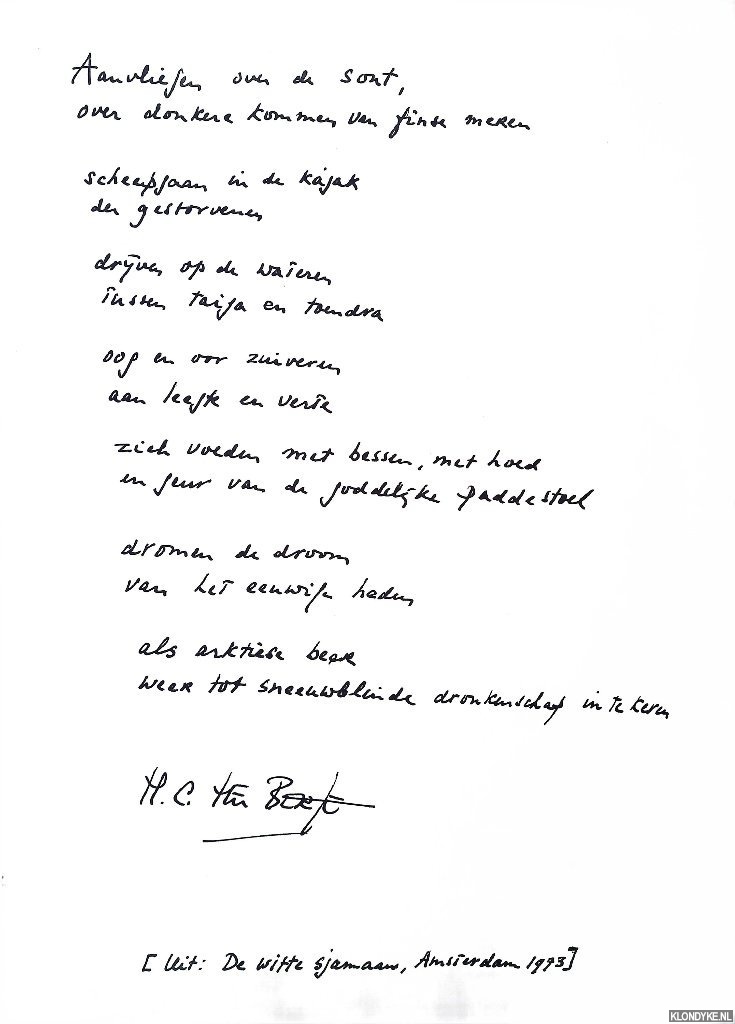 Aanvliegen over de sont,
over donkere kommen van finse meren
scheepgaan in de kajak
der gestorvenen
drijven op de wateren
tussen taiga en toendra
oog en oor zuiveren
aan leegte en verte
zich voeden met bessen, met hoed
en geur van de goddelijke paddestoel
dromen de droom
van het eeuwige heden
als arktiese beer
weer tot sneeuwblinde dronkenschap in te keren
H.C. ten Berge
[Uit: De witte sjamaan, Amsterdam 1973]
KLONDYKE.NL